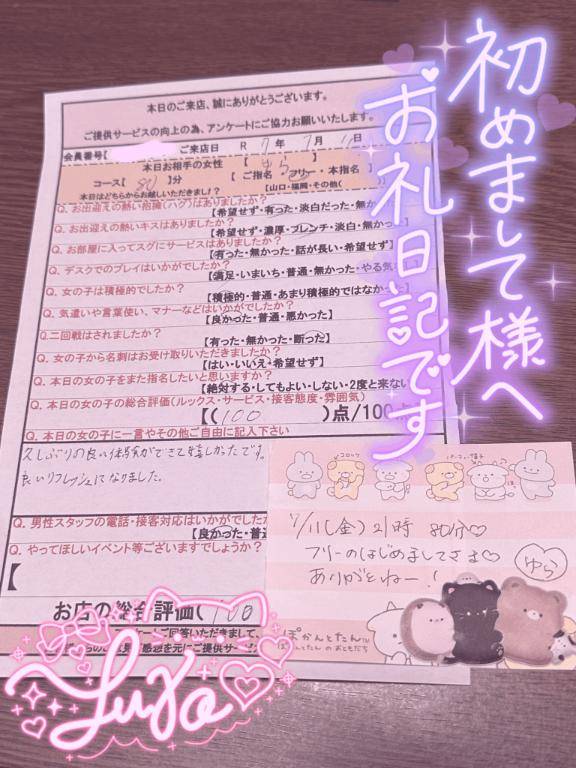 初めまして様へ
お礼日記です
本日のご来店、誠にありがとうございます。
ご提供サービスの向上の為、アンケートにご協力お願いいたします。
会員番号【 ご来店日 R 7年 7月 11日
本日お相手の女性 【 ゆら 】
コース【 80 】分 【 ご指名・フリー・本指名】
本日はどちらからお越しいただきまし!? 【山口・福岡・その他(
Q. お出迎えの熱い抱擁(ハグ)はありましたか?
【希望せず・有った・淡白だった・無か
Q. お出迎えの熱いキスはありましたか?
【希望せず・濃厚・フレンチ・淡白・無か
Q. お部屋に入ってスグにサービスはありましたか?
【有った・無かった・話が長い・希望せず】
Q. デスクでのプレイはいかがでしたか?
【満足・いまいち・普通・無かった・やる気
Q. 女の子は積極的でしたか?
【積極的・普通・あまり積極的ではなか
Q. 気遣いや言葉使い、マナーなどはいかがでしたか?
【良かった・普通・悪かった】
Q.二回戦はされましたか?
【有った・無かった・断った】
Q. 女の子から名刺はお受け取りいただきましたか?
【はい・いいえ・希望せず】
Q. 本日の女の子をまた指名したいと思いますか?
【絶対する・してもよい・しない・2度と来ない
Q. 本日の女の子の総合評価(ルックス・サービス・接客態度・雰囲気)
【( 100 )点/100
Q. 本日の女の子に一言やその他ご自由に記入下さい
久しぶりの良い体験ができて嬉しかったです。
良いリフレッシュになりました。
Q. 男性スタッフの電話・接客対応はいかがでした
【良かった・普通
Q. やってほしいイベント等ございますでしょうか?
【
お店の総合評価( 100
ご回答いただきまして、
感想を元にご提供サー
7/11(金)21時 80分♡
フリーのはじめましてさま♡
ありがとねー!
ゆら
ぽかんとたん
んとたん のおともだち
Yura